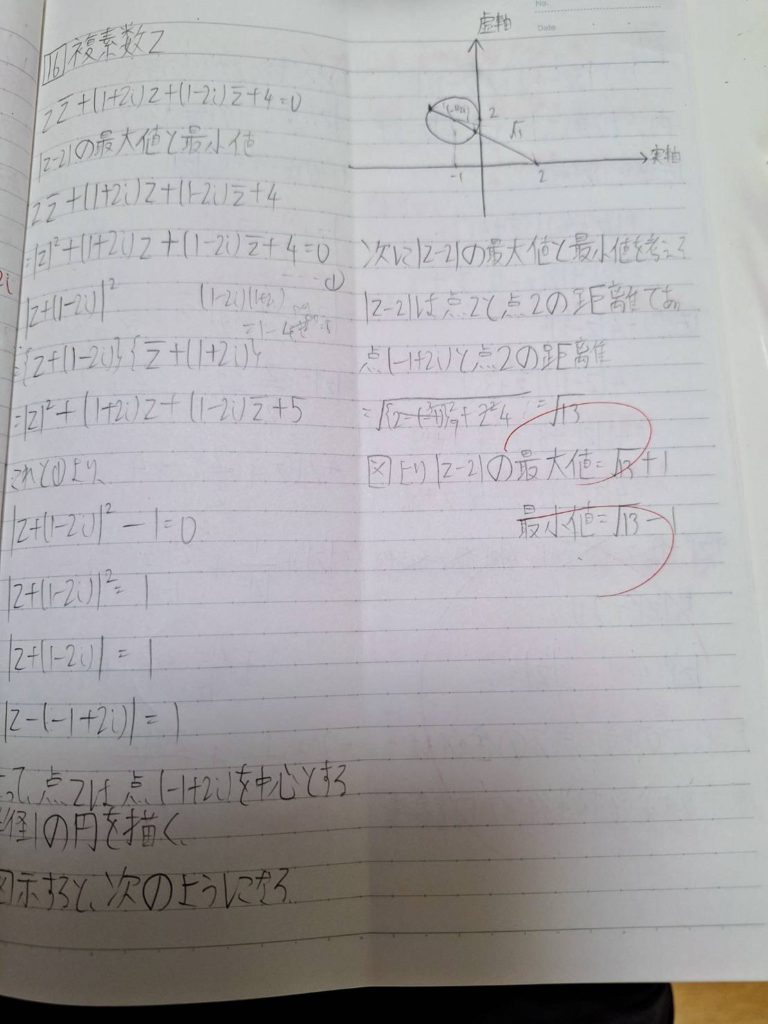 16 複素数z
z z̄+(1+2i)z+(1-2i)z̄+4=0
|z-2|の最大値と最小値
z z̄+(1+2i)z+(1-2i)z̄+4
=|z|²+(1+2i)z+(1-2i)z̄+4=0
…①
|z+(1-2i)|²
={z+(1-2i)}{z̄+(1+2i)}
=|z|²+(1+2i)z+(1-2i)z̄+5
これと①より、
|z+(1-2i)|²-1=0
|z+(1-2i)|²=1
|z+(1-2i)|=1
|z-(-1+2i)|=1
って、点zは点(-1+2i)を中心とする
径1の円を描く、
図示すると、次のようになる
No.
Date
虚軸
2
-1
2
実軸
次に|z-2|の最大値と最小値を考える
|z-2|は点zと点2の距離であ
点(-1+2i)と点2の距離
=√13
図より|z-2|の最大値=√13+1
最小値=√13-1